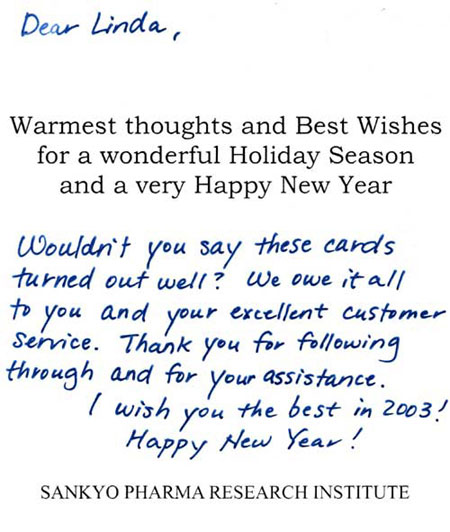 Dear Linda,
Warmest thoughts and Best Wishes
for a wonderful Holiday Season
and a very Happy New Year
Wouldn't you say these cards
turned out well? We owe it all
to you and your excellent customer
service. Thank you for following
through and for your assistance.
I wish you the best in 2003!
Happy New Year!
SANKYO PHARMA RESEARCH INSTITUTE